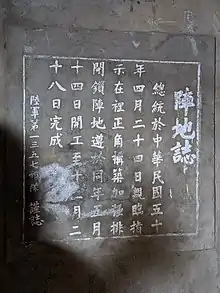 陣地誌
總統於中華民國五十
年四月二十四日親臨指
示在裡正角構築加強排
閉鎖陣地遵於同年五月
十四日開工至十一月二
十八日完成
陸軍第一三五七部隊 謹誌